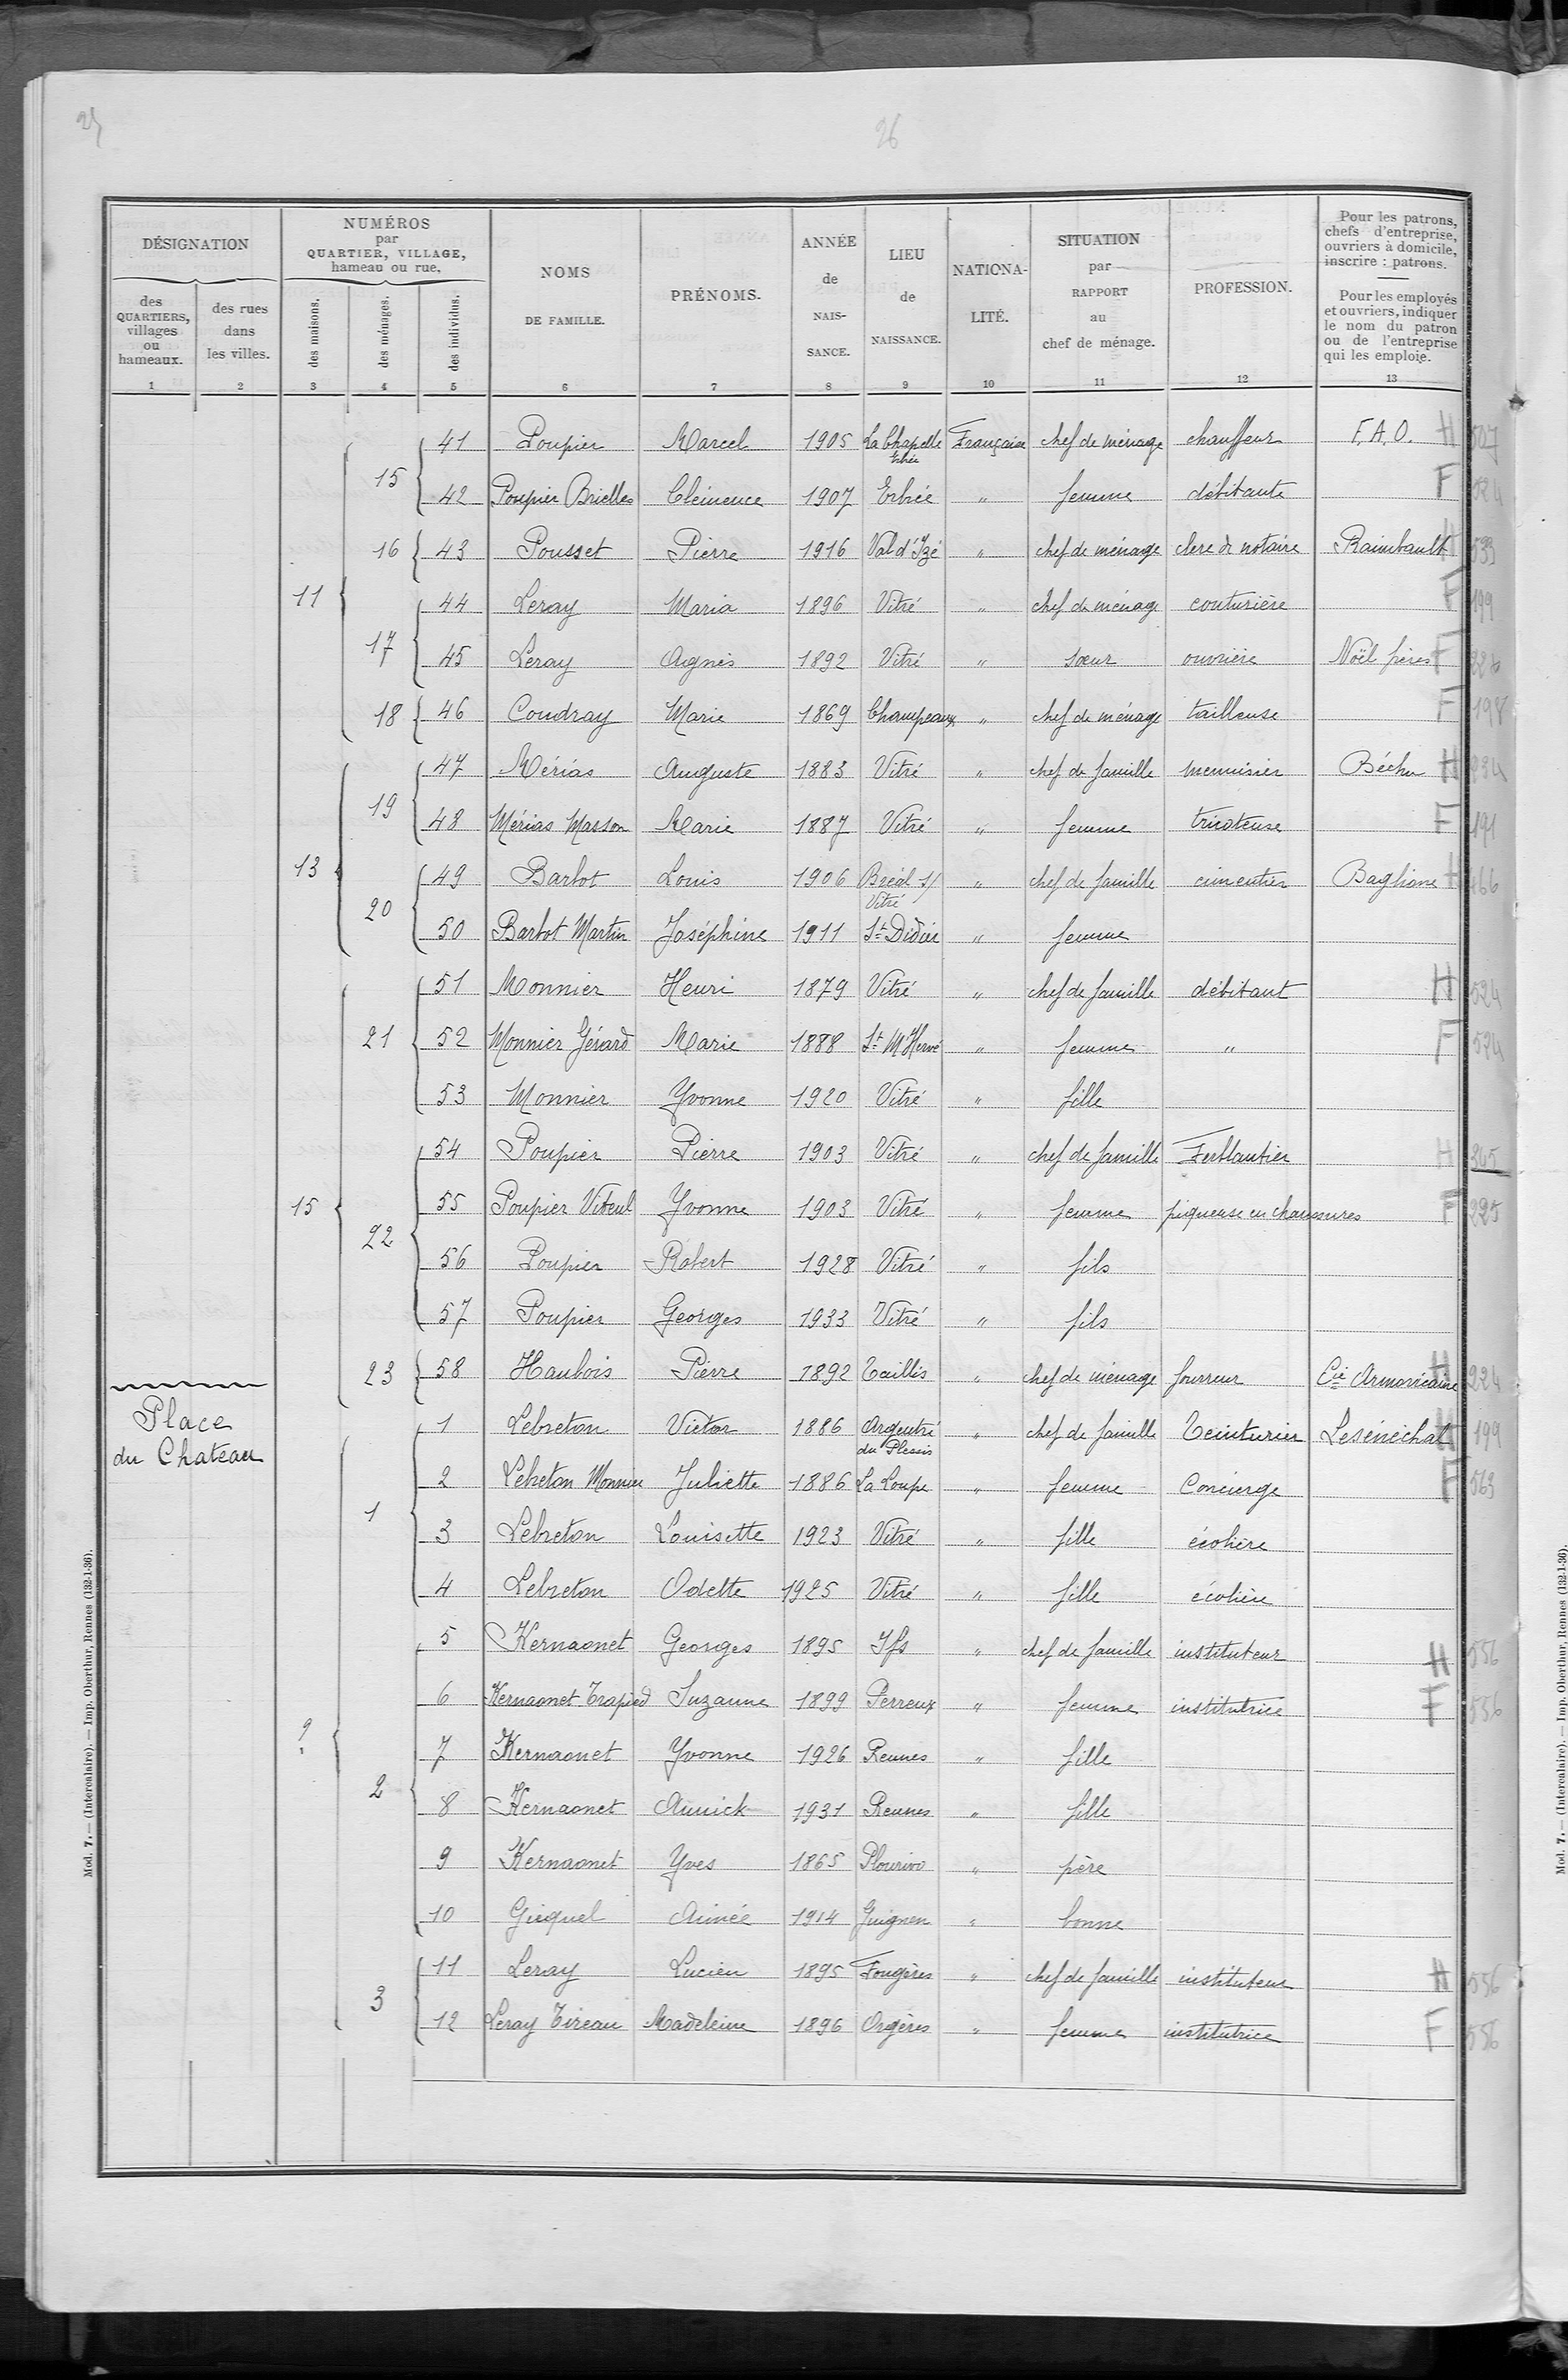 25
26
DÉSIGNATION
des QUARTIERS, villages ou hameaux.
des rues dans les villes.
NUMÉROS par QUARTIER, VILLAGE, hameau ou rue.
des maisons.
des ménages.
des individus.
NOMS DE FAMILLE.
PRÉNOMS.
ANNÉE de NAISSANCE.
LIEU de NAISSANCE.
NATIONALITÉ.
SITUATION par RAPPORT au chef de ménage.
PROFESSION.
Pour les patrons, chefs d'entreprise, ouvriers à domicile, inscrire : patrons.
Pour les employés et ouvriers, indiquer le nom du patron ou de l'entreprise qui les emploie.
1 2 3 4 5 6 7 8 9 10 11 12 13
11 15 41 Poupier Marcel 1905 La Chapelle Erbrée Française chef de ménage chauffeur F.A.O. H 507
42 Poupier Brielles Clémence 1907 Erbrée " femme débitante F 524
16 43 Pousset Pierre 1916 Val d'Izé " chef de ménage clerc de notaire Raimbault H 533
17 44 Leray Maria 1896 Vitré " chef de ménage couturière F 199
45 Leray Agnès 1892 Vitré " sœur ouvrière Noël frères F
18 46 Coudray Marie 1869 Champeaux " chef de ménage tailleuse F 198
13 19 47 Mérias Auguste 1883 Vitré " chef de famille menuisier Béchu H
48 Mérias Masson Marie 1887 Vitré " femme tricoteuse F 191
20 49 Barbot Louis 1906 Bréal s/ Vitré " chef de famille cimentier Baglione H 466
50 Barbot Martin Joséphine 1911 St Didier " femme
15 21 51 Monnier Henri 1879 Vitré " chef de famille débitant H 524
52 Monnier Gérard Marie 1888 St M'Hervé " femme " F 524
53 Monnier Yvonne 1920 Vitré " fille
22 54 Poupier Pierre 1903 Vitré " chef de famille Ferblantier H 265
55 Poupier Viteul Yvonne 1903 Vitré " femme piqueuse en chaussures F 225
56 Poupier Robert 1928 Vitré " fils
57 Poupier Georges 1933 Vitré " fils
23 58 Haubois Pierre 1892 Taillis " chef de ménage fourreur Cie Armoricaine H 224
Place
du Chateau
? 1 1 Lebreton Victor 1886 Argentré du Plessis " chef de famille Teinturier Lesénéchal H 199
2 Lebreton Monnier Juliette 1886 La Loupe " femme Concierge F 563
3 Lebreton Louisette 1923 Vitré " fille écolière
4 Lebreton Odette 1925 Vitré " fille écolière
2 5 Kernaonet Georges 1895 Ifs " chef de famille instituteur H 556
6 Kernaonet Trapied Suzanne 1899 Perreux " femme institutrice F 556
7 Kernaonet Yvonne 1926 Rennes " fille
8 Kernaonet Annick 1931 Rennes " fille
9 Kernaonet Yves 1865 Plourivo " père
10 Gicquel Aimée 1914 Guignen " bonne
3 11 Leray Lucien 1895 Fougères " chef de famille instituteur H 556
12 Leray Tireau Madeleine 1896 Orgères " femme institutrice F 556
Mod. 7. — (Intercalaire). — Imp. Oberthur, Rennes (132-1-36).
Mod. 7. — (Intercalaire). — Imp. Oberthur, Rennes (132-1-36).